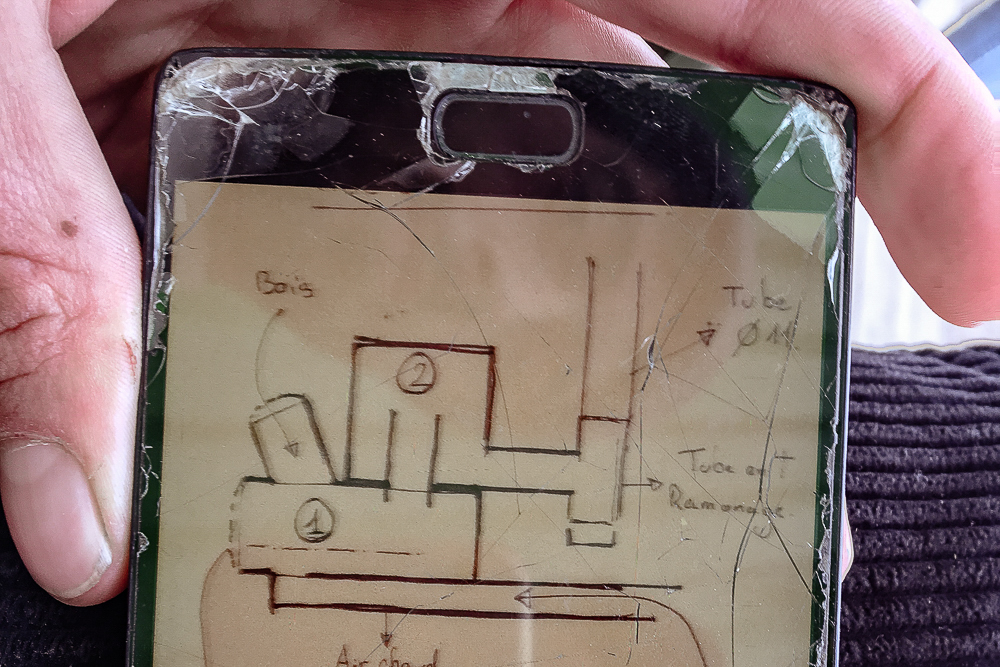 Bois
Tube
Ø 11
2
Tube en T
Ramonage
1
Air chaud